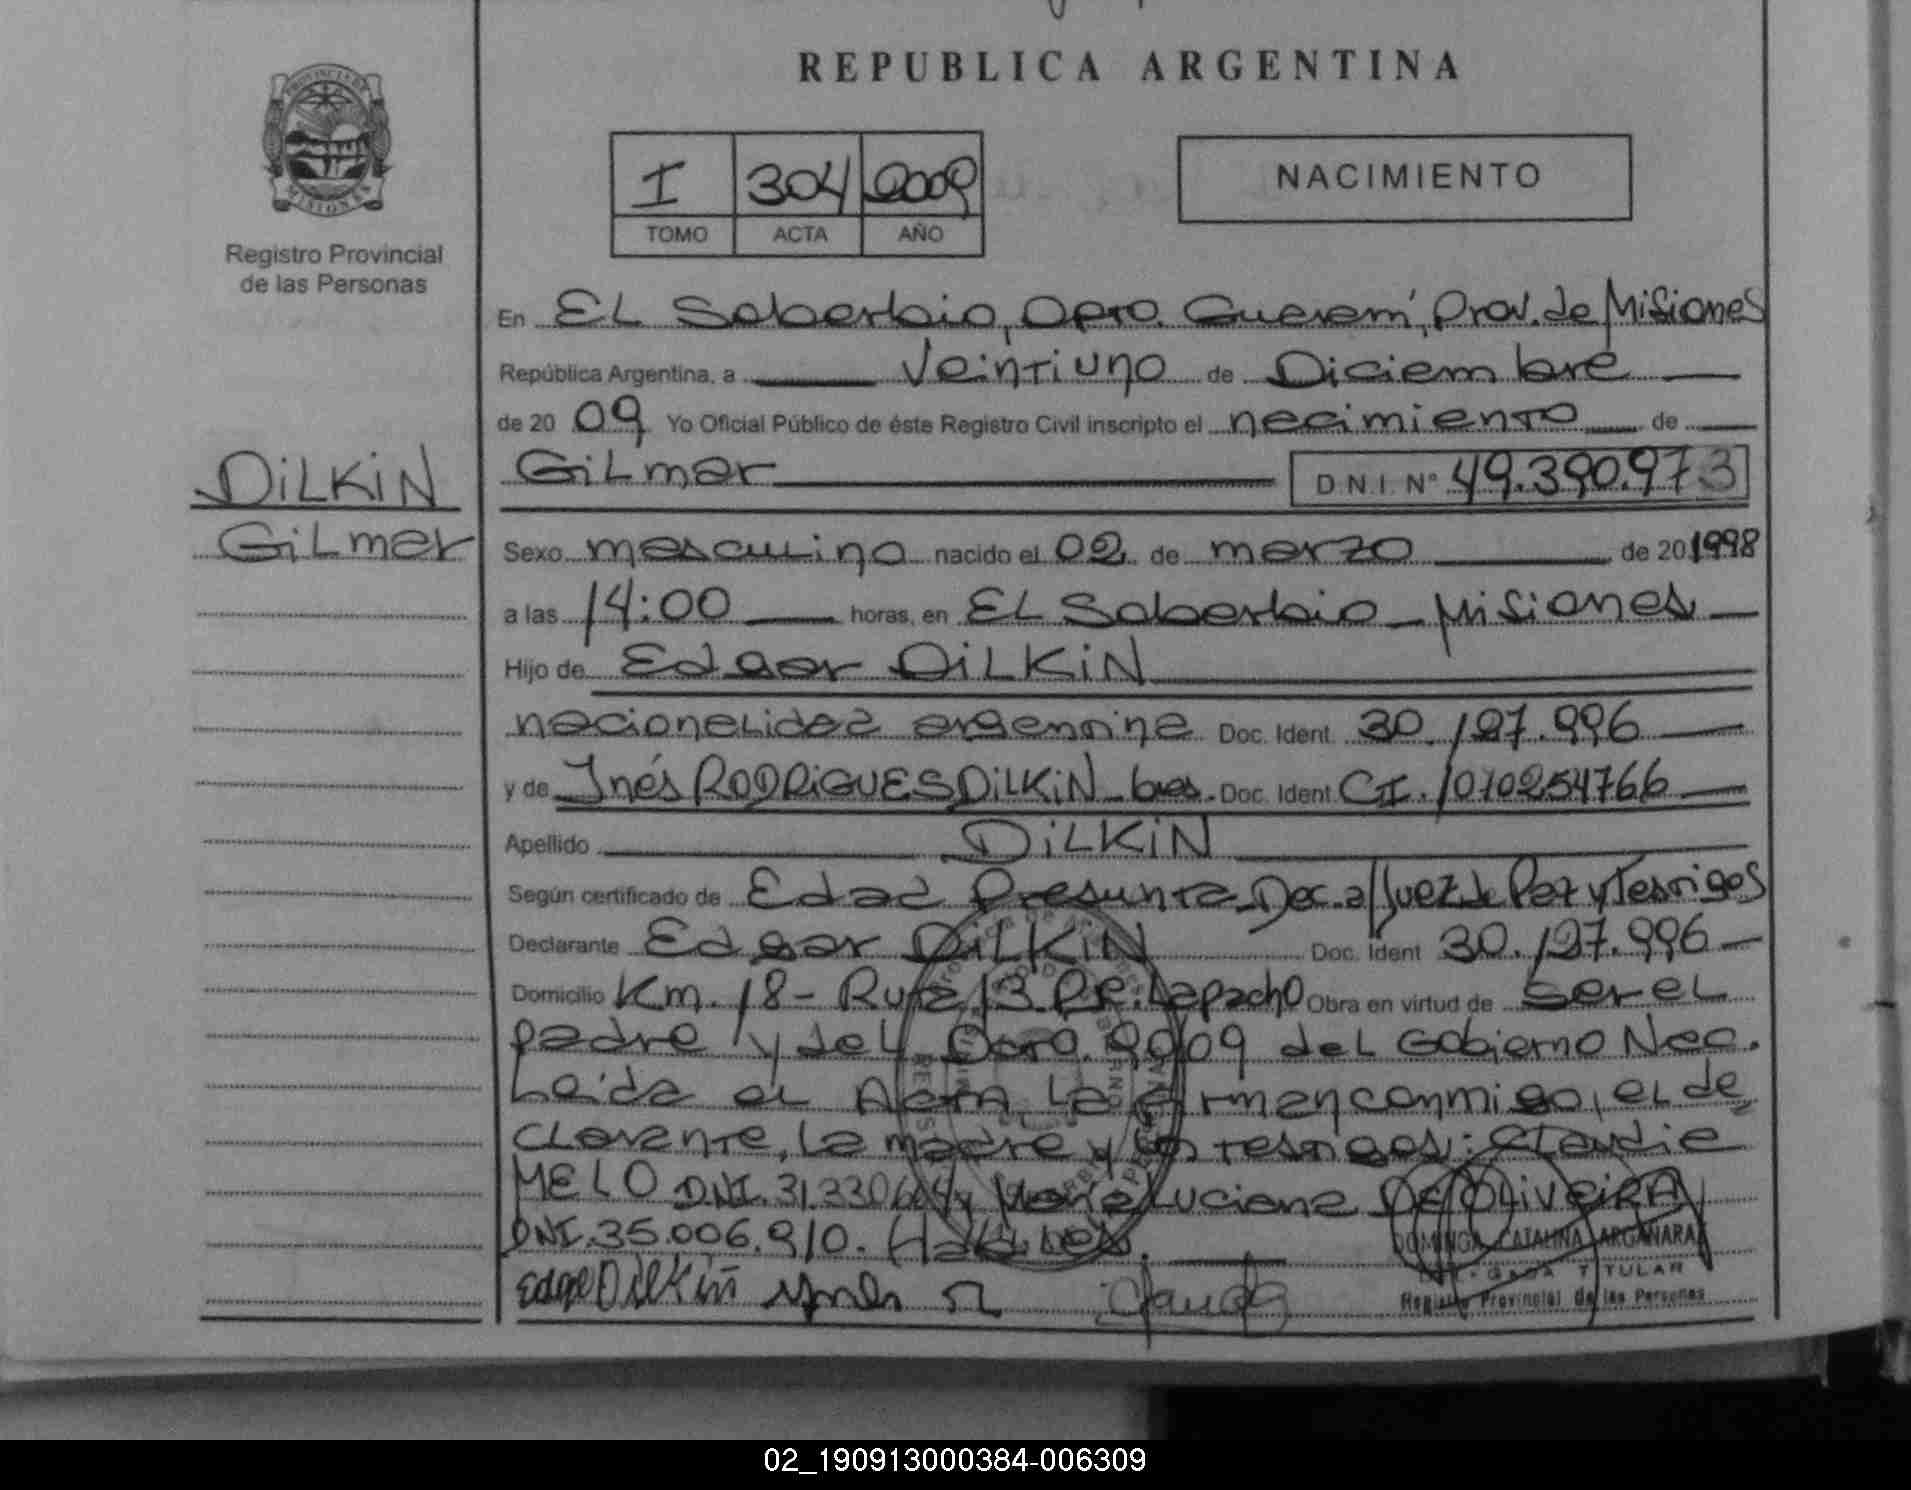 REPUBLICA ARGENTINA
PROVINCIA DE
MISIONES
Registro Provincial
de las Personas
I 304 2009
TOMO ACTA AÑO
NACIMIENTO
En EL Soberbio, Dpto. Guarani, Prov. de Misiones
República Argentina, a Veintiuno de Diciembre
de 2009 Yo Oficial Público de éste Registro Civil inscripto el nacimiento de
DILKIN
Gilmar D.N.I. Nº 49.390.973
Gilmar
Sexo masculino nacido el 02 de marzo de 20 1998
a las 14:00 horas, en EL Soberbio - Misiones
Hijo de Edgar DILKIN
nacionalidad argentina Doc. Ident 30.127.996
y de Inés RODRIGUES DILKIN bras. Doc. Ident CI. 1010254766
Apellido DILKIN
Según certificado de Edad Presunta Dec. a/Juez de Paz y Testigos
Declarante Edgar DILKIN Doc. Ident 30.127.996
Domicilio Km. 18 - Ruta 13 Lapacho Obra en virtud de ser el
padre y del Dcto. 90/09 del Gobierno Nac.
Leida el Acta, la firman conmigo, el de
clarante, la madre y los testigos: Claudia
MELO DNI. y Maria Luciana DE OLIVEIRA
DNI. 35.006.910. Habiles.
Edgar Dilkin
DOMINGA CATALINA ARGAÑARAZ
TITULAR
Registro Provincial de las Personas
02_190913000384-006309